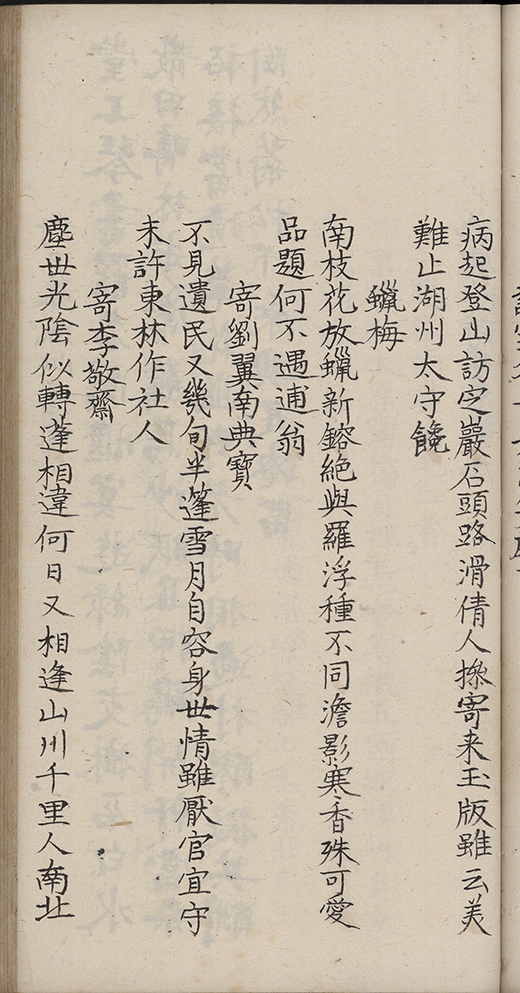 病起登山訪定巖石頭路滑倩人搀寄来玉版雖云美
難止湖州太守饞
蠟梅
南枝花放蠟新鎔絶與羅浮種不同澹影寒香殊可愛
品題何不遇逋翁
寄劉翼南典寳
不見遺民又幾旬半蓬雪月自容身世情雖厭官宜守
未許東林作社人
寄李敬齋
塵世光陰似轉蓬相違何日又相逢山川千里人南北